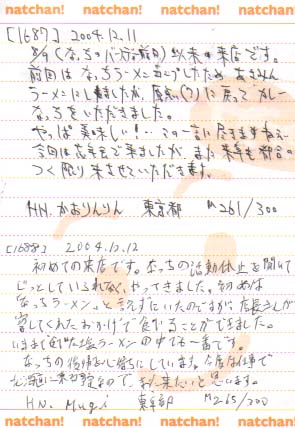 natchan! natchan! natchan! natchan! natchan!
[1687] 2004.12.11
8/9(なっちのバースデー前夜)以来の来店です。
前回はなっちラーメン
ラーメンにしましたが、原点(?)に戻ってカレー
なっちをいただきました。
やっぱ美味しい！…この一言に尽きますねぇ…
今回は忘年会で来ましたが、また来年も都合の
つく限り来させていただきます。
HN. かおりんりん 東京都 M261/300
[1688] 2004.12.12
初めての来店です。なっちの活動休止を聞いて
じっとしていられなく, やってきました。初めは
なっちラーメン、と言えずにいたのですが、店長さんが
察してくれたおかげで食べることができました。
いままで食べた塩ラーメンの中でも一番です。
なっちの復帰を心待ちにしています。今度は仕事で
北海道に来る予定なので、また来たいと思います。
HN. Mugi 東京都 M265/300
natchan! natchan! natchan! natchan! natchan!